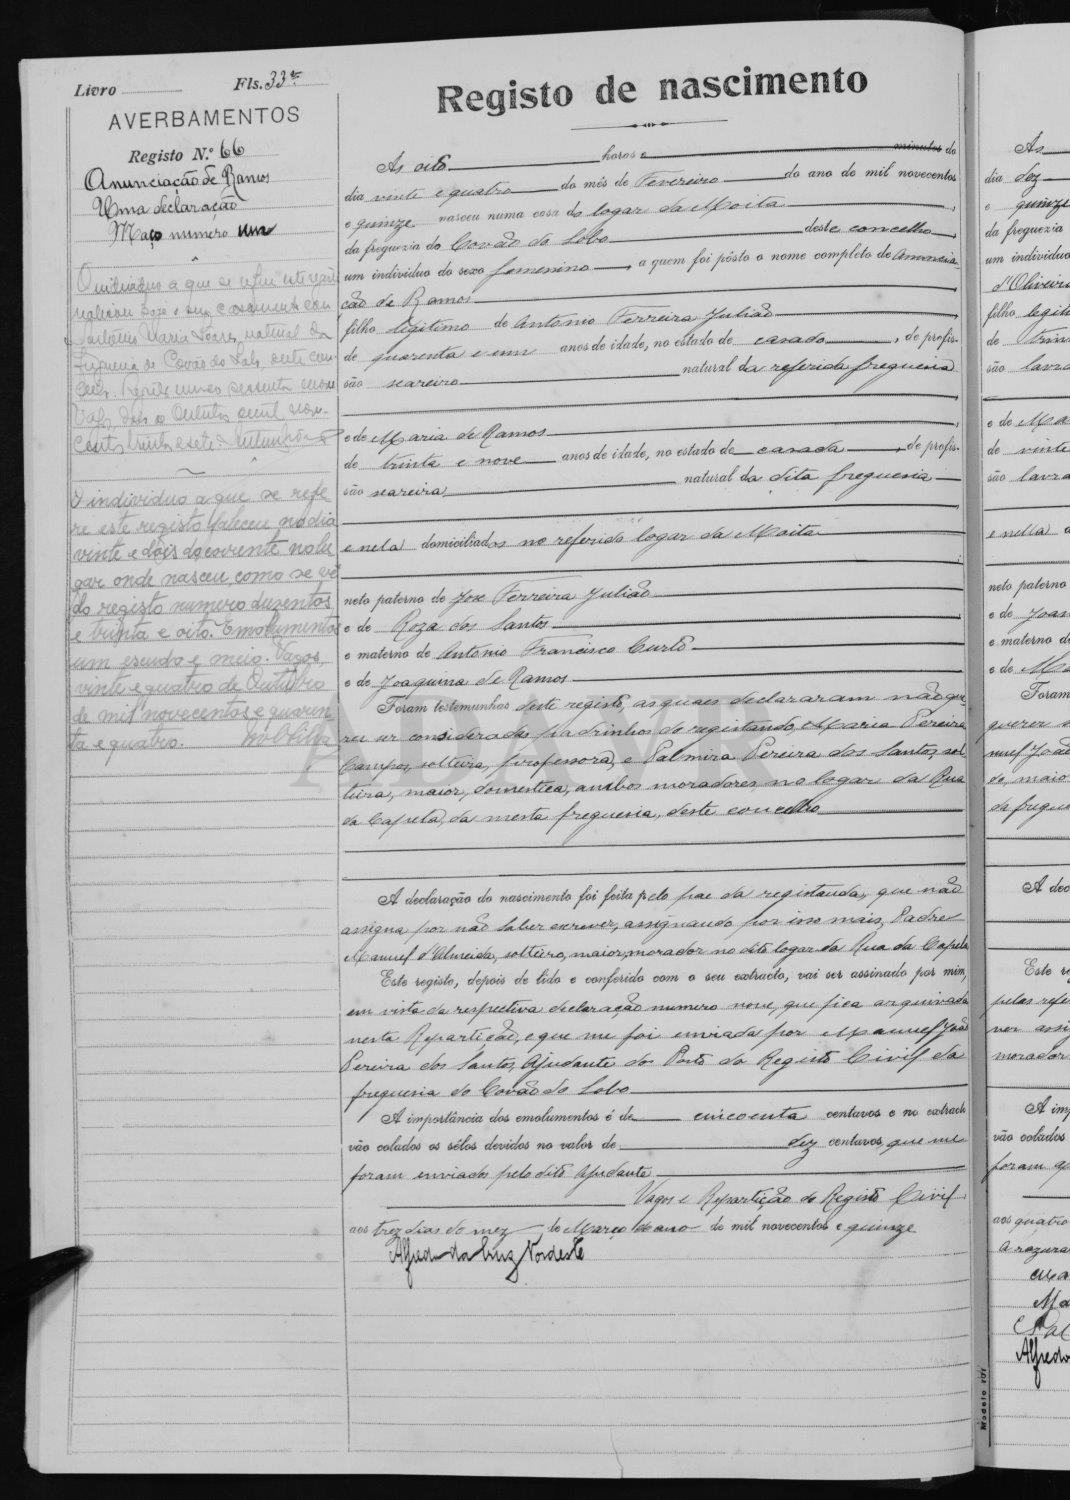 Livro Fls. 33
AVERBAMENTOS
Registo N.º 66
Anunciação de Ramos
Uma declaração
Maço numero um
O individuo a que se refere este registo
realisou hoje o seu casamento com
Maria Soares, natural da
freguesia de Covão do Lobo, deste con-
celho. Registo numero sessenta e nove
Vagos, dois de Outubro de mil nove-
centos trinta e sete.
O individuo a que se refe-
re este registo faleceu no dia
vinte e dois do corrente no lu-
gar onde nasceu, como se vê
do registo numero duzentos
e trinta e oito. Emolumentos
um escudo e meio. Vagos,
vinte e quatro de Outubro
de mil novecentos e quaren-
ta e quatro.
Registo de nascimento
Ás oito horas e minutos do
dia vinte e quatro do mês de Fevereiro do ano de mil novecentos
e quinze nasceu numa casa do logar da Moita
da freguezia do Covão do Lobo deste concelho,
um individuo do sexo femenino, a quem foi pôsto o nome completo de Anuncia-
ção de Ramos
filho legitimo de Antonio Ferreira Julião
de quarenta e um anos de idade, no estado de casado, de profis-
são seareiro natural da referida freguesia
e de Maria de Ramos
de trinta e nove anos de idade, no estado de casada, de profis-
são seareira natural da dita freguesia
e nela domiciliados no referido logar da Moita
neto paterno de José Ferreira Julião
e de Roza dos Santos
e materno de Antonio Francisco Curto
e de Joaquina de Ramos
Foram testemunhas deste registo, as quaes declararam não que-
rer ser consideradas padrinhos do registando, Maria Pereira
Campos, solteira, professora, e Palmira Pereira dos Santos, sol-
teira, maior, domestica, ambos moradores no logar da Rua
da Capela, da mesma freguesia, deste concelho
A declaração do nascimento foi feita pelo pae da registanda, que não
assigna por não saber escrever, assignando por isso mais, Padre
Manuel d'Almeida, solteiro, maior, morador no dito logar da Rua da Capela
Este registo, depois de lido e conferido com o seu extracto, vai ser assinado por mim,
em vista da respectiva declaração numero nove, que fica arquivada
nesta Repartição, e que me foi enviada por Manuel João
Pereira dos Santos, Ajudante do Posto do Registo Civil da
freguesia do Covão do Lobo
A importância dos emolumentos é de cincoenta centavos e no extracto
vão colados os sêlos devidos no valor de dez centavos, que me
foram enviados pelo dito ajudante
Vagos e Repartição do Registo Civil
aos trez dias do mez de Março do ano de mil novecentos e quinze
Alfredo da Cruz Nordeste
ADAVR
Modelo 101